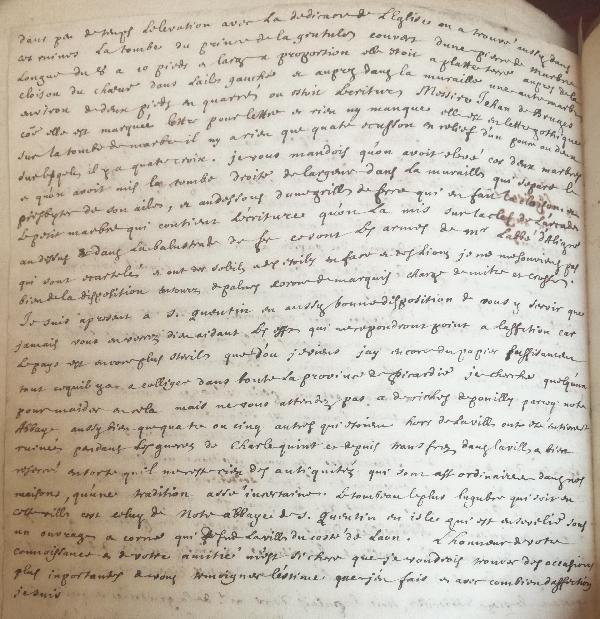 dans peu de temps l'elevation avec La dedicace de L'Eglise on a trouvé aussy dans
ces ruines La tombe du prince de la gruthuse couvert d'une pierre de marbre
Longue du 8 a 10 pieds et Large a proportion elle estoit a platte terre aupres de la
cloison du chœur dans L'aile gauche et aupres dans la muraille une autre marbre
environ de deux pieds en quarré ou estoit L'ecriture Messire Jehan de Bruges
elle est marquée lettre pour lettre et rien ny manque elle est en lettre gothique
sur la tombe de marbre il ny a rien que quatre ecusson en relief d'un pouce ou deux
sur lesquels il y a quatre croix. je vous mandois qu'on avoit elevé ces deux marbres
et qu'on avoit mis la tombe droite de largeur dans La muraille qui separe le
presbytere de son aile, et au dessous d'une grille de ferre qui en fait la cloison
Le petit marbre qui contient L'ecriture qu'on La mis sur la clef de
au dessus et dans La balustrade de fer ce sont Les armes de Mr L'abbé d'Aligre
qui sont ecartelé et ont des soleils des etoiles en face et des lions je ne me souviens pas
bien de la disposition entouré de palmes couronne de marquis chargé de mitre et crosse.
Je suis apresent a S. Quentin en aussy bonne disposition de vous y servir que
jamais vous en verrez dieu aidant Les effets qui ne repondront point a l'affection car
Le pays est encore plus sterile que d'ou je viens jay encore du papier suffisament
tout ce qu'il y a a colliger dans toute La province de picardie je cherche quelqu'un
pour m'aider en cela mais ne vous attendez pas a de riches depouilles parcequ notre
Abbaye aussy bien que quatre ou cinq autres qui etoient hors de La ville ont esté entierement
ruinees pendant Les guerres de Charlequint et depuis transferez dans la ville a bien
resserré en sorte qu'il ne reste rien des antiquitéz qui sont asse ordinaires dans nos
maisons, qu'une tradition assé incertaine. Le tombeau Le plus lugubre qui soit en
cette ville est celuy de Notre abbaye de S. Quentin en isle qui est enseveli sous
un ouvrage a corne qui La ville du costé de Laon. L'honneur de votre
connoissance et de votre amitié m'est si chere que je voudrois trouver des occasions
plus inportantes de vous temoigner L'estime que j'en fais et avec combien d'affection
je suis